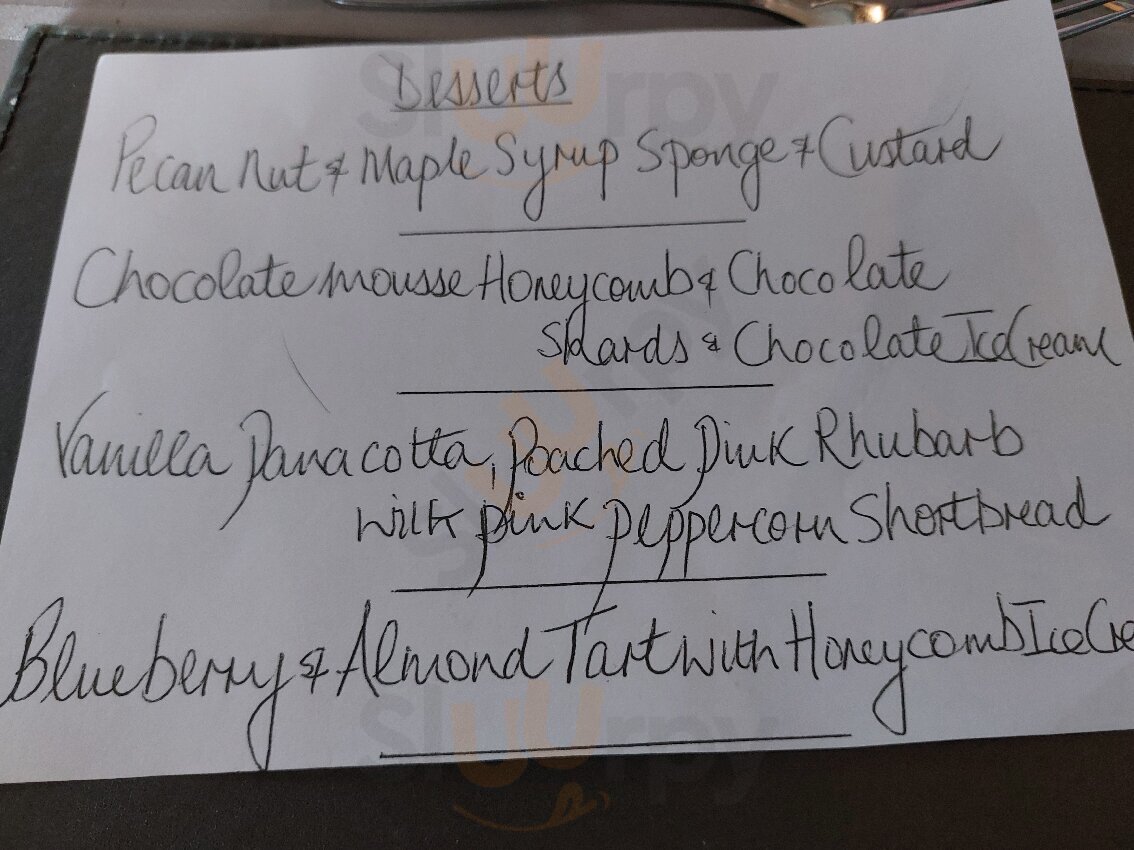 Desserts
Pecan Nut & Maple Syrup Sponge & Custard
Chocolate mousse Honeycomb & Chocolate
Shards & Chocolate Ice Cream
Vanilla Panacotta, Poached Pink Rhubarb
with pink peppercorn Shortbread
Blueberry & Almond Tart with Honeycomb Ice Cre
Sluurpy
Sluurpy